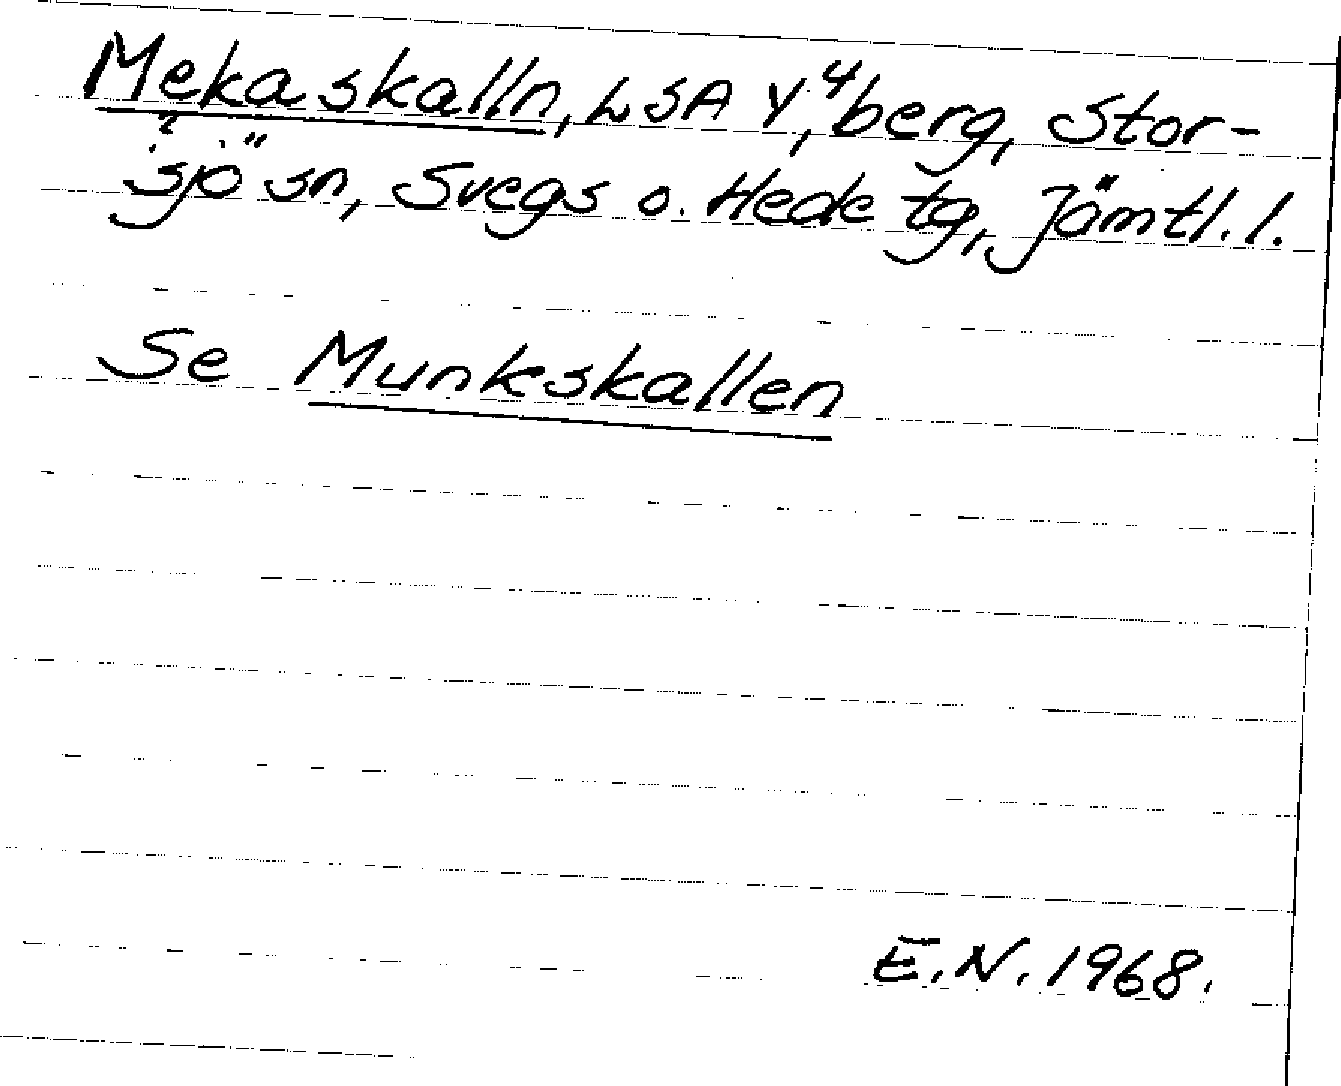 Mekaskalln, LSA Y⁴, berg, Stor-
sjö sn, Svegs o. Hede tg, Jämtl. l.
Se Munkskallen
E.N. 1968.